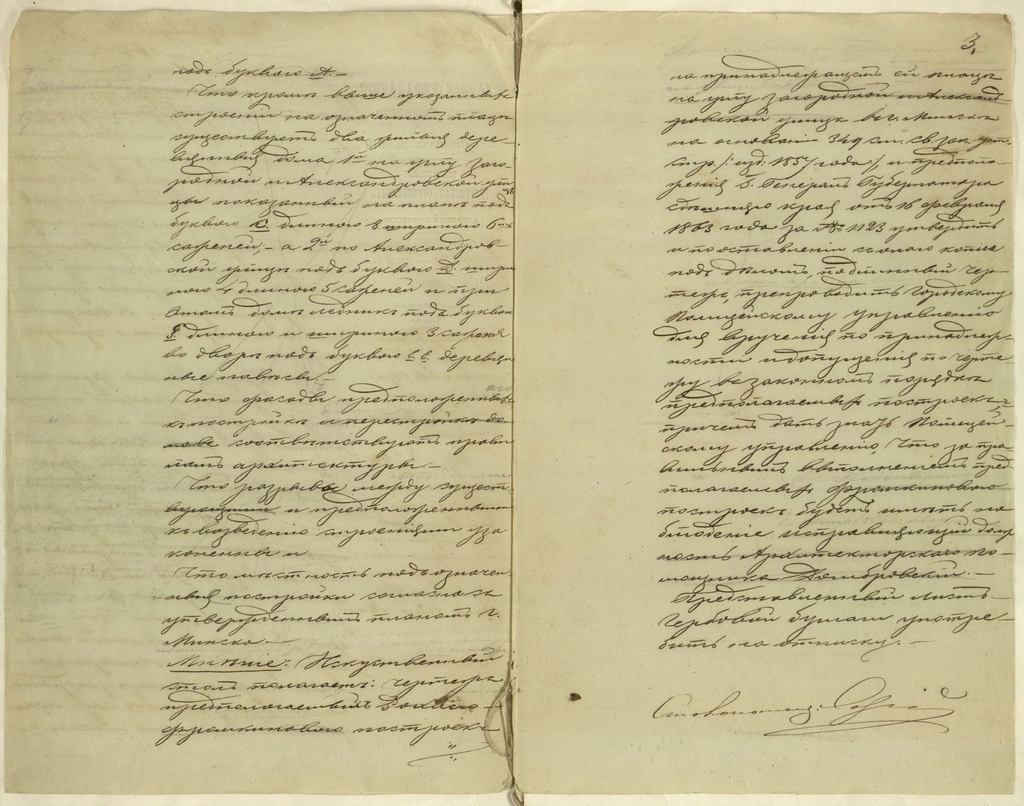 подъ буквою А. —
Что кромѣ выше указанныхъ
строеній на означенномъ плацѣ
существуютъ два жилыя дере-
вянныя дома 1й на углу Заго-
родной и Александровской ули
цы показанный на планѣ подъ
буквою длиною 8 шириною 6
саженей — а 2й по Александров-
ской улицѣ подъ буквою шири
ною 4 длиною 5 саженей и при
этомъ домѣ ледникъ подъ буквою
длиною и шириною 3 сажени
во дворѣ подъ буквою деревян
ные навѣсы. —
Что фасады предположенныхъ
къ постройкѣ и перестройкѣ до-
мовъ соотвѣтствуютъ прави
ламъ архитектуры. —
Что разрывы между сущест
вующими и предположенными
къ возведенію строеніями уза
конены и
Что мѣстность подъ означен
ныя постройки согласна съ
утвержденнымъ планомъ г.
Минска. —
Мнѣніе: Искуственный
столъ полагаетъ: чертежъ
предполагаемыхъ
Фрумкиновою построекъ
3.
на принадлежащемъ ей плацѣ
на углу загородной и Александ
ровской улицъ въ г. Минскѣ
на основаніи 349 ст. Св. зак. уст.
стр. /: изд. 1857 года /: и предполо-
женія Г. Генералъ Губернатора
здѣшняго края отъ 16 февраля
1863 года за № 1123 утвердить
и по оставленіи съ него копіи
подъ дѣломъ, подлинный чер-
тежъ препроводить Городскому
Полицейскому управленію
для врученія по принадлеж-
ности и допущенія по черте-
жу въ законномъ порядкѣ
предполагаемыхъ построекъ,
причемъ дать знать Полицей-
скому управленію, что за пра-
вильнымъ выполненіемъ пред
полагаемыхъ Фрумкиновою
построекъ будетъ имѣть на
блюденіе исправляющій долж
ность Архитекторскаго по-
мощника Домбровскій. —
Представленный листъ
гербовой бумаги употре-
бить на отписку. —
Столоначал: